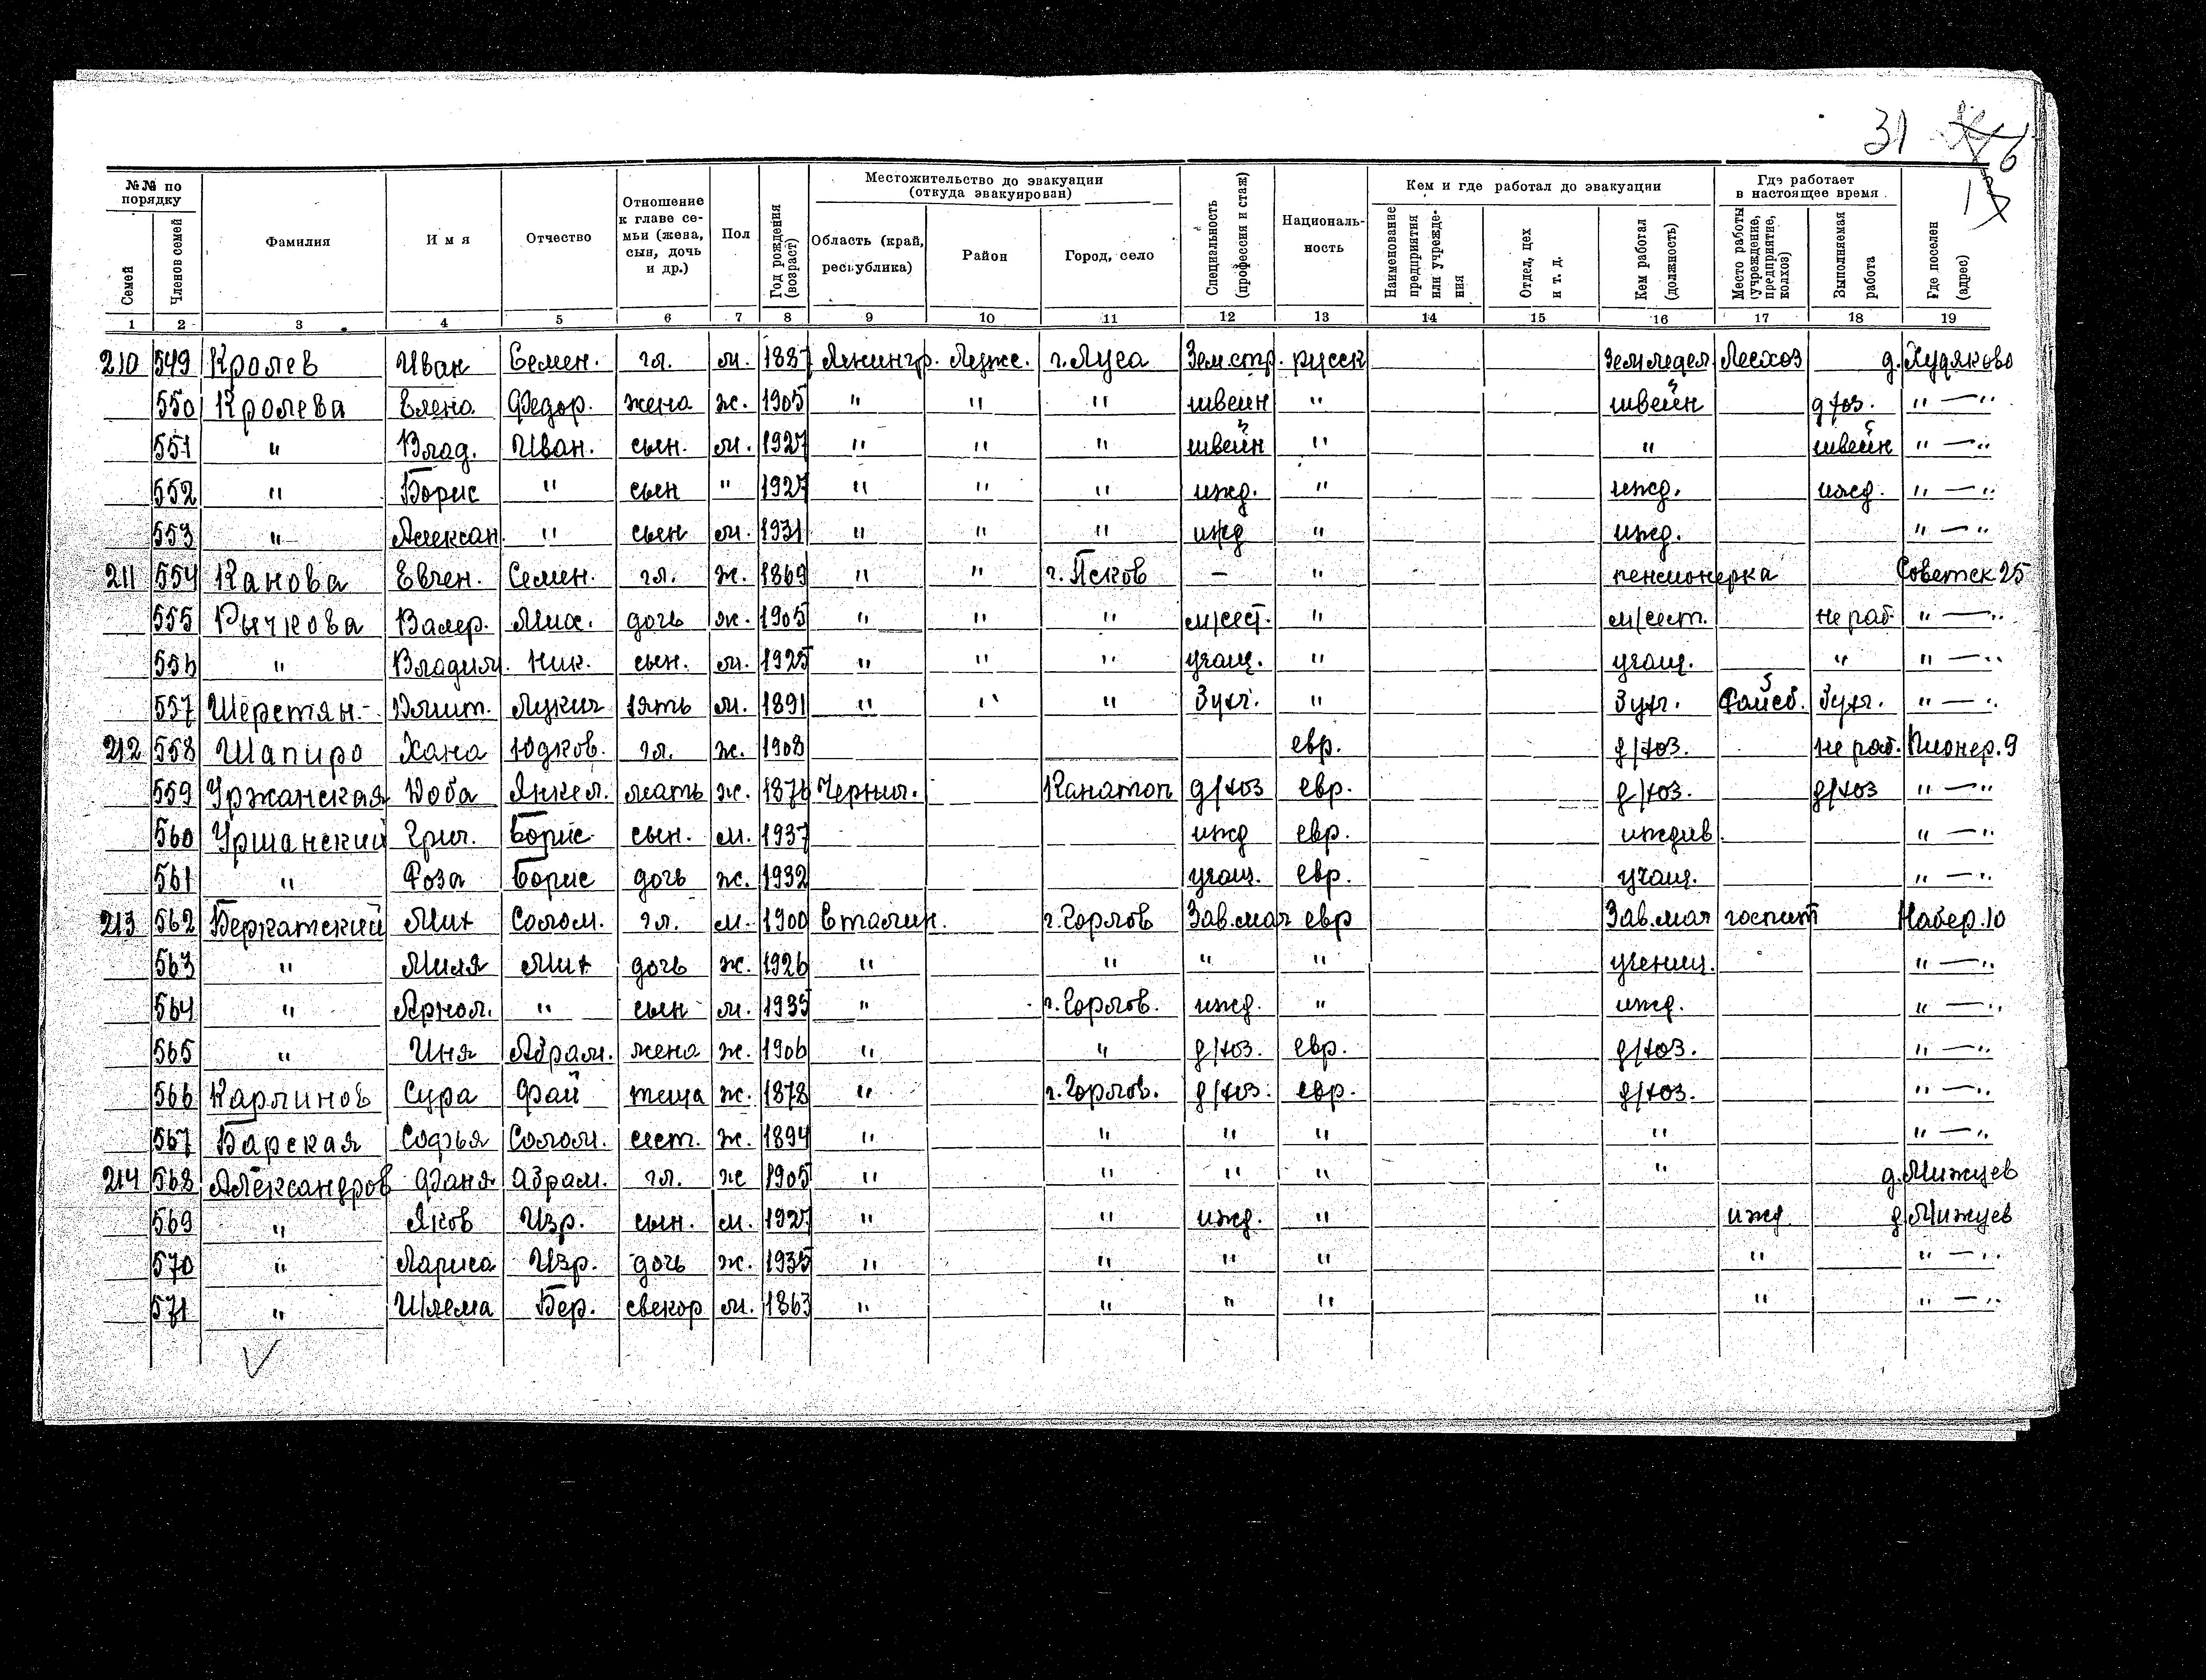 31
№№ по порядку
Семей
Членов семей
Фамилия
Имя
Отчество
Отношение к главе семьи (жена, сын, дочь и др.)
Пол
Год рождения (возраст)
Местожительство до эвакуации (откуда эвакуирован)
Область (край, республика)
Район
Город, село
Специальность (профессия и стаж)
Националь-ность
Кем и где работал до эвакуации
Наименование предприятия или учрежде-ния
Отдел, цех и т. д.
Кем работал (должность)
Где работает в настоящее время
Место работы (учреждение, предприятие, колхоз)
Выполняемая работа
Где поселен (адрес)
1 2 3 4 5 6 7 8 9 10 11 12 13 14 15 16 17 18 19
210 549 Кролев Иван Семен. гл. м. 1887 Ленингр. Лужс. г. Луга Зем.стр. русск Земледел. Лесхоз д. Худяково
550 Кролева Елена Федор. жена ж. 1905 " " " швейн " швейн д хоз. " — "
551 " Влад. Иван. сын. м. 1927 " " " швейн " " швейн " — "
552 " Борис " сын " 1927 " " " ижд. " ижд. ижд. " — "
553 " Алексан. " сын м. 1931 " " " ижд " ижд. " — "
211 554 Канова Евген. Семен. гл. ж. 1869 " " г. Псков — " пенсионерка Советск 25
555 Рычкова Валер. Мих. дочь ж. 1905 " " " м/сест. " м/сест. не раб. " — "
556 " Владим. Ник. сын. м. 1925 " " " учащ. " учащ. " " — "
557 Шерстян. Дмит. Лукич зять м. 1891 " " " Бухг. " Бухг. Бухг. " — "
212 558 Шапиро Хана Юдков. гл. ж. 1908 евр. д/хоз. не раб. Пионер. 9
559 Уржанская Доба Янкел. мать ж. 1876 Черниг. Канатоп д/хоз евр. д/хоз. д/хоз " — "
560 Уршанский Григ. Борис сын. м. 1937 ижд евр. иждив. " — "
561 " Роза Борис дочь ж. 1932 учащ. евр. учащ. " — "
213 562 Беркатский Мих Солом. гл. м. 1900 Сталин. г. Горлов Зав.маг евр Зав.маг госпит Набер. 10
563 " Миля Мих дочь ж. 1926 " " " " учениц. " — "
564 " Арнол. " сын м. 1935 " г. Горлов. ижд. " ижд. " — "
565 " Иня Абрам. жена ж. 1906 " " д/хоз. евр. д/хоз. " — "
566 Карлинов Сура Фай теща ж. 1878 " г. Горлов. д/хоз. евр. д/хоз. " — "
567 Барская Софья Солом. сест. ж. 1894 " " " " " " — "
214 568 Александров Фаня Абрам. гл. ж 1905 " " " " " д. Мижуев
569 " Яков Изр. сын. м. 1927 " " ижд. " ижд д. Мижуев
570 " Лариса Изр. дочь ж. 1935 " " " " " " — "
571 " Шлема Бер. свекор м. 1863 " " " " " " — "